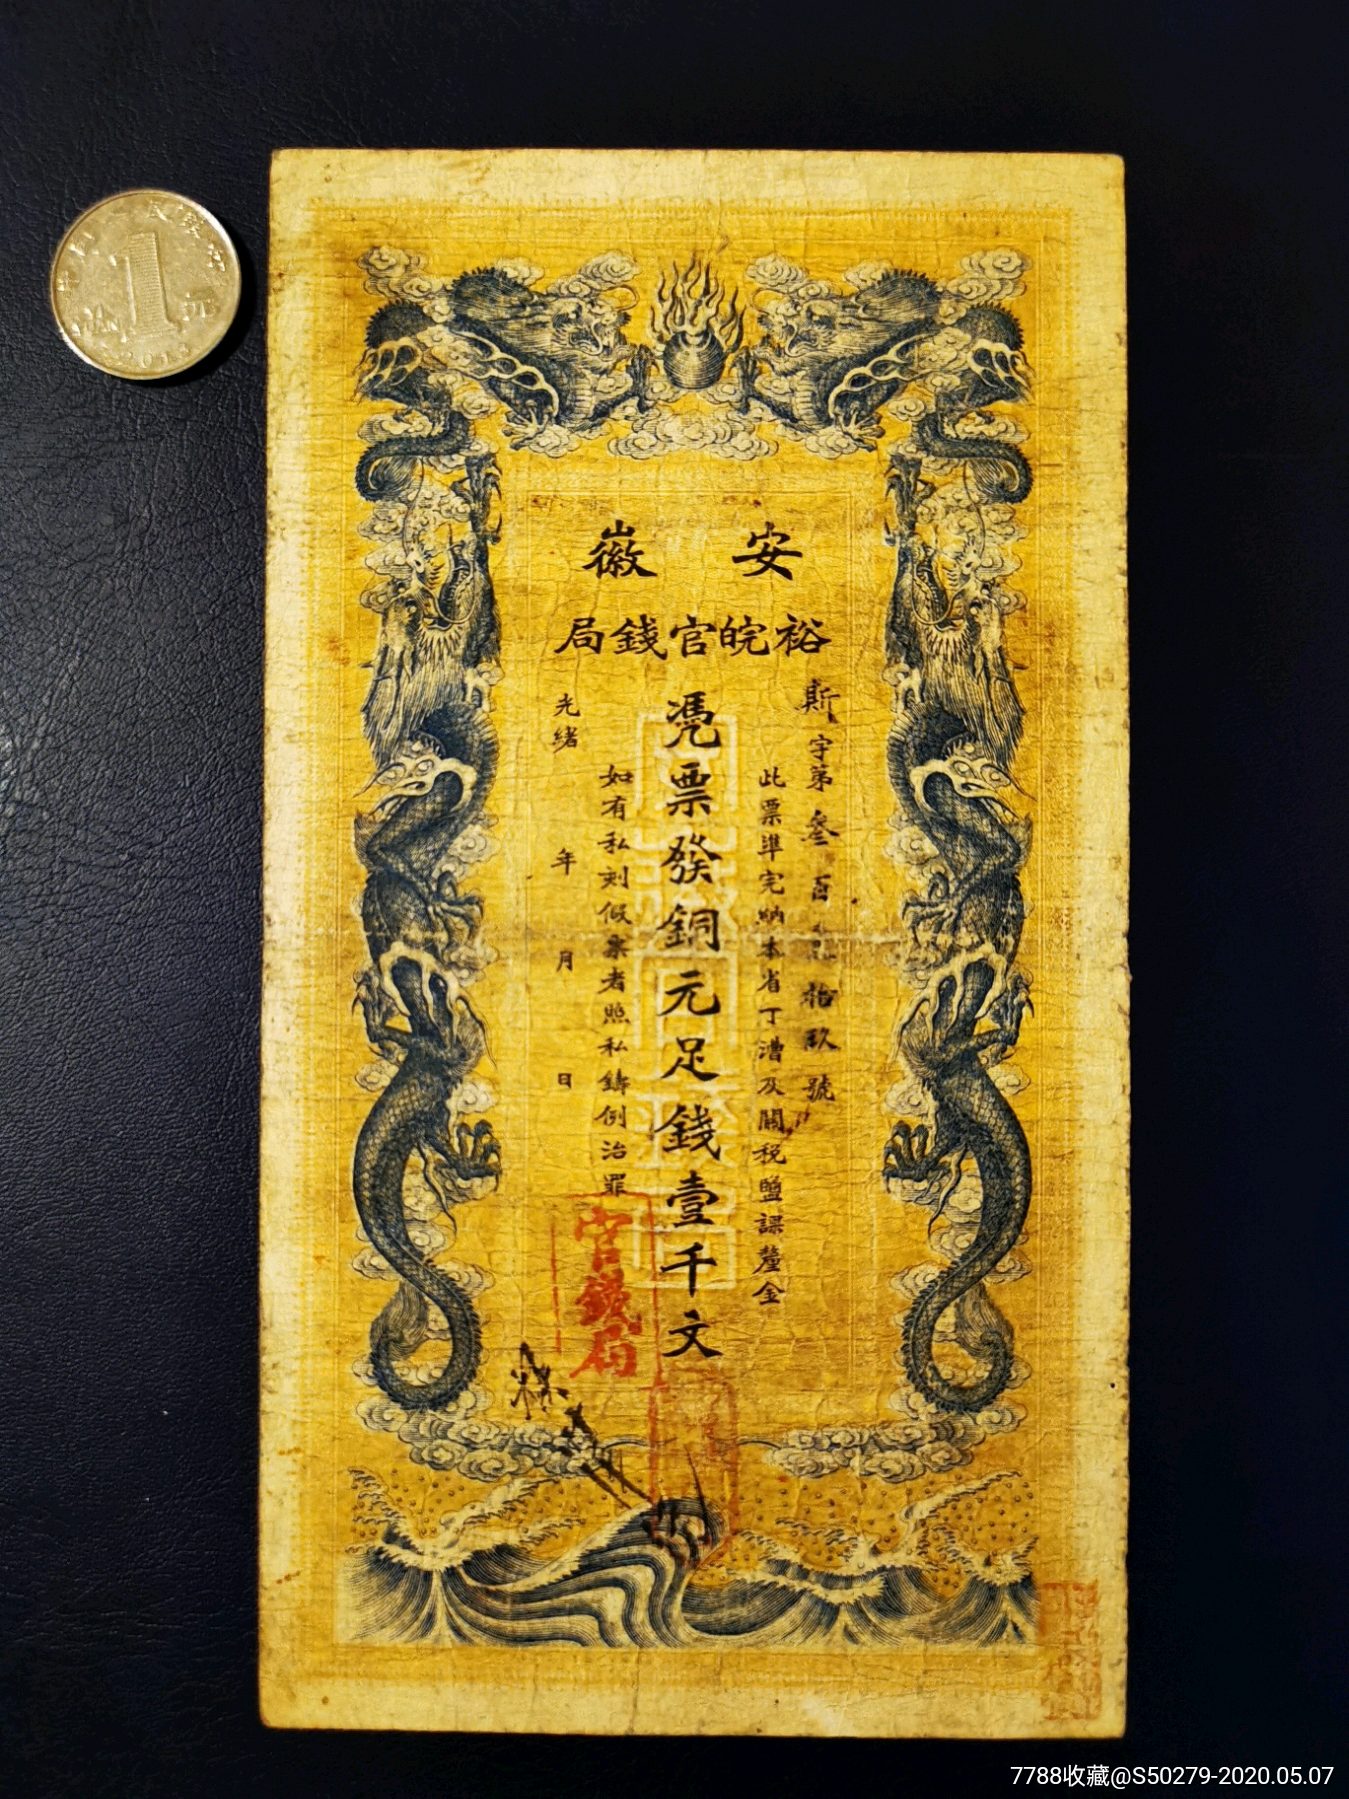 安徽
裕皖官錢局
斯字第叁百 拾玖號
此票準完納本省丁漕及關稅鹽課釐金
憑票發銅元足錢壹千文
如有私刻假票者照私鑄例治罪
光緒 年 月 日
官錢局
1
2013
7788收藏@S50279-2020.05.07